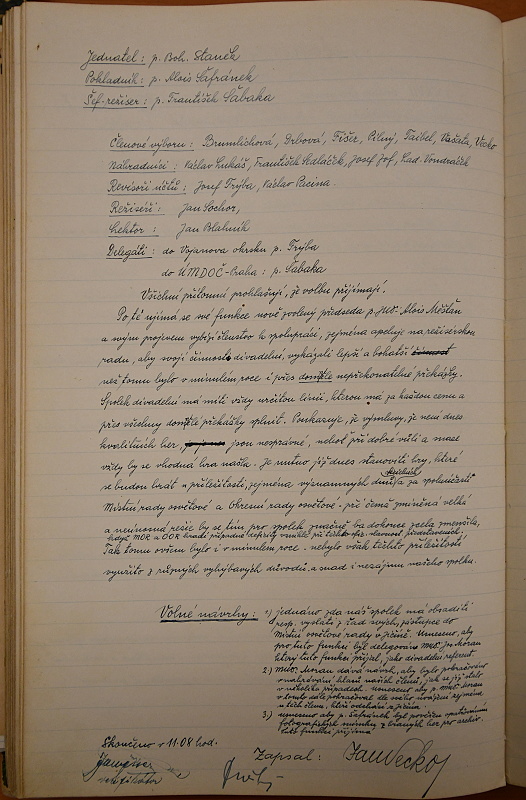 Jednatel: p. Boh. Staněk
Pokladník: p. Alois Šafránek
Šéf-režiser: p. František Sabaka
Členové výboru: Brumlichová, Drbová, Fišer, Pilný, Taibel, Vašata, Vecko
Náhradníci: Václav Lukáš, František Sedláček, Josef Jof, Lad. Vondráček
Revisoři účtů: Josef Tryba, Václav Pacina.
Režiséři: Jan Sochor,
Lektor: Jan Blatník
Delegáti: do Vojanova okrsku p. Tryba
do ÚMDOČ-Praha: p. Sabaka
Všichni přítomní prohlašují, že volbu přijímají.
Po té ujímá se své funkce nově zvolený předseda p. JUC. Alois Měšťan
a svým projevem vybízí členstvo k spolupráci, zejména apeluje na režisérskou
radu, aby svojí činnost divadelní vykázali lepší a bohatší činnost
než tomu bylo v minulém roce i přes domělé nepřekonatelné překážky.
Spolek divadelní má míti vždy určitou linii, kterou má za každou cenu a
přes všechny domělé překážky splnit. Poukazuje, že výmluvy, že není dnes
kvalitních her, jsou nesprávné, neboť při dobré vůli a snaze
vždy by se vhodná hra našla. Je nutno již dnes stanoviti hry, které
se budou hrát u příležitosti, zejména významných dnů za společnosti
Místní rady osvětové a Okresní rady osvětové - při čemž zmíněná velká
a neúnosná režie by se tím pro spolek značně ba dokonce zcela zmenšila,
když MOR a OOR hradí případné deficity vzniklé při těchto představeních.
Tak tomu ovšem bylo i v minulém roce - nebylo však těchto příležitostí
využito z různých vyhýbavých důvodů a snad i nezájmu našeho spolku.
Volné návrhy: 1) jednáno zda náš spolek má obsaditi
resp. vyslati z řad svých, zástupce do
Místní osvětové rady v Jičíně. Usneseno, aby
pro tuto funkci byl delegován MUC. Jos. Moran
který tuto funkci přijal, jako divadelní referent.
2.) MUC. Moran dává návrh, aby bylo pokračováno
v nahrávání hlasů našich členů, jak se již stalo
v několika případech. Usneseno aby p. MUC. Moran
v tomto dále pokračoval dle svého uvážení zejména
u těch členů, kteří odchází z Jičína.
3.) usneseno aby p. Šafránek byl pověřen
fotografických snímků z hraných her pro archiv.
Tuto funkci přijímá
Skončeno v 11.08 hod.
Zapsal: Jan Vecko